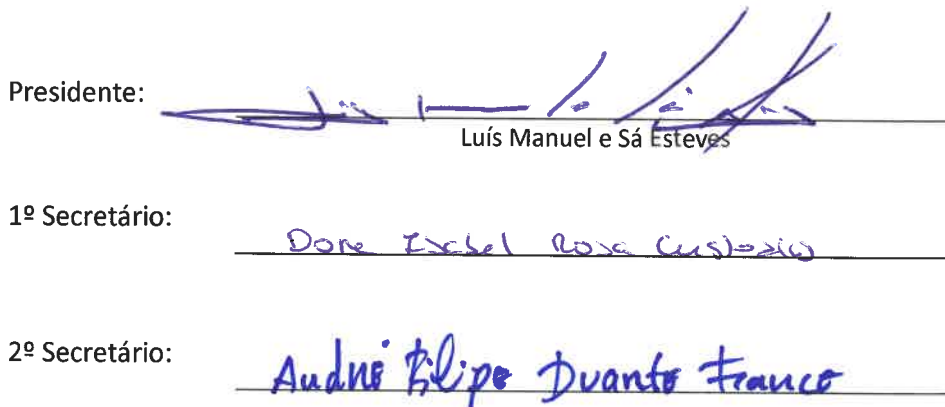 Presidente:
Luís Manuel e Sá Esteves
1º Secretário:
Dora Isabel Rosa Custodio
2º Secretário:
André Filipe Duarte Franco